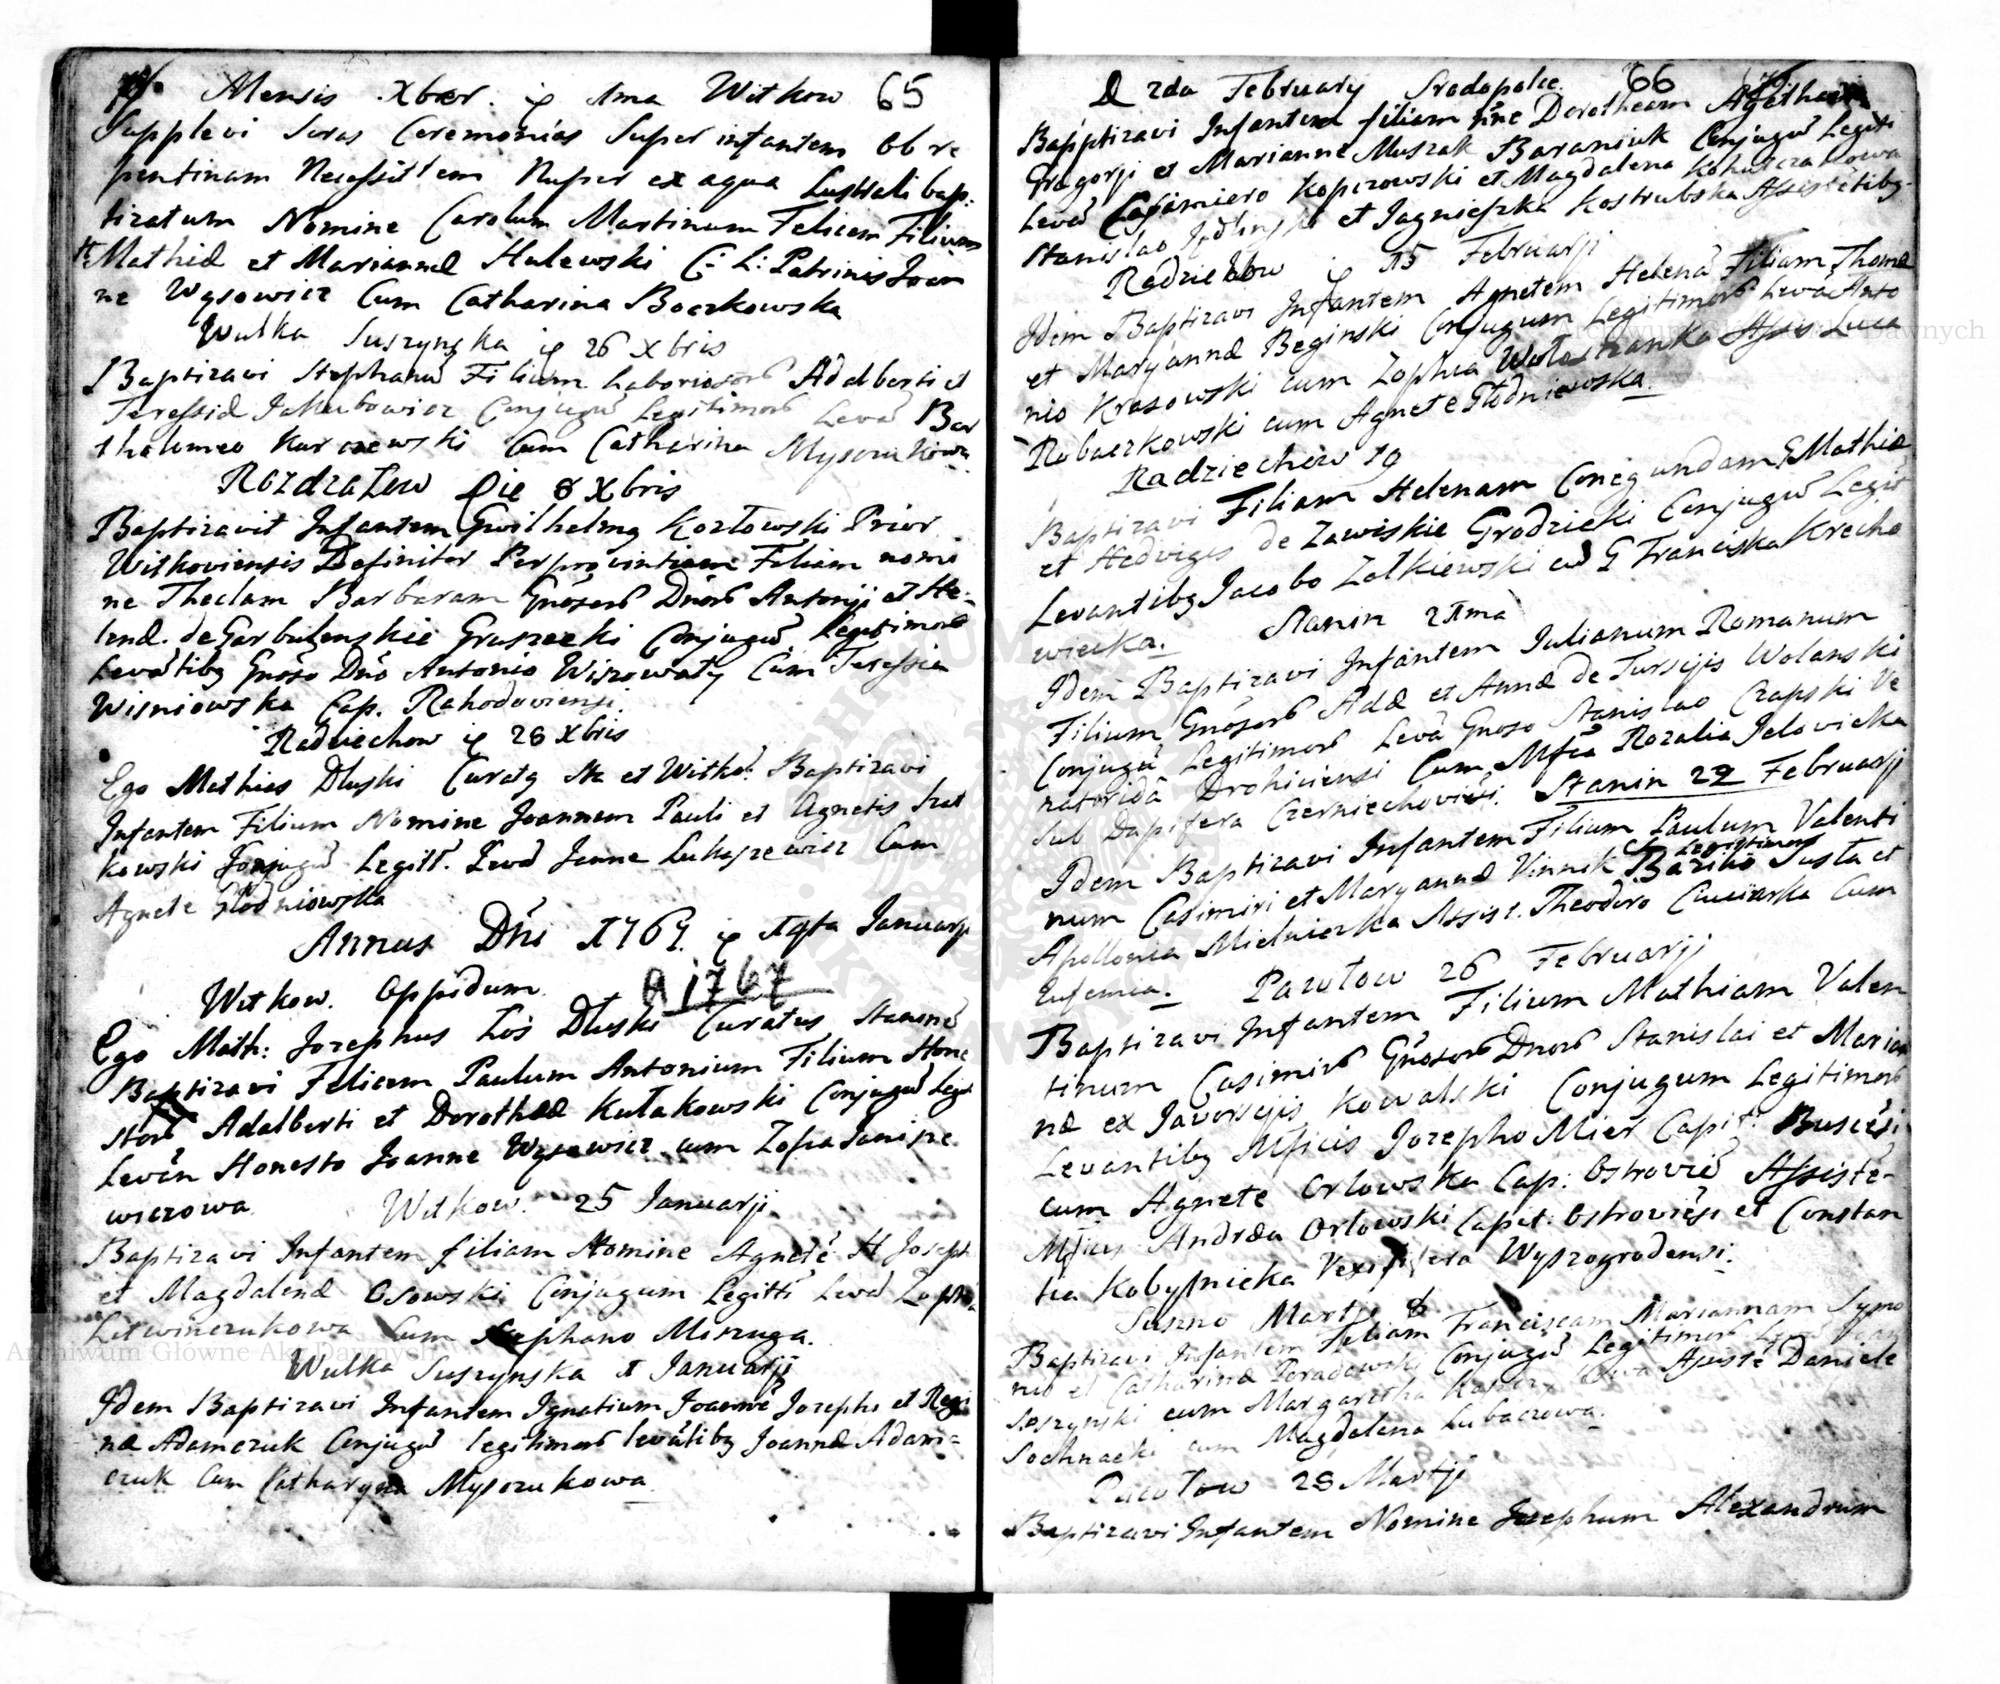 Mensis Xbr. ip 1ma Witkow 65
Supplevi Sacras Ceremonias Super infantem Ob re
pentinam Necessittem Nuper ex aqua Lustrali bap:
tizatum Nomine Carolum Martinum Felicem Filium
Mathiæ et Mariannæ Hulewski C: L: Patrinis Joan
ne Wąsowicz Cum Catharina Boczkowska
Wulka Suszynska ip 26 Xbris
Baptizavi Stephanū Filium Laboriosorū Adalberti et
Teressiæ Jakubowicz Conjugū Legitimorū Levā Bar
tholomeo Karczewski Cum Catharina Mysozukowa
Rozdzałow Die 8 Xbris
Baptizavit Infantem Gwilhelmg Kozłowski Prior
Witkoviensis Definitor Per provintiam Filiam nomi
ne Theclam Barbaram Gnōsorū Dnōrū Antonji et He:
lenæ de Garbulenskie Gruszecki Conjugū Legitimorū
Levātibg Gnōso Dnō Antonio Wiszowaty Cum Teressia
Wisniowska Cap. Rahodoviensi.
Radziechow ip 28 Xbris
Ego Mathias Dłuski Curatg St et Witko: Baptizavi
Infantem Filium Nomine Joannem Pauli et Agnetis Szat
kowski Conjugū Legitt. Levā Janne Lukaszewicz Cum
Agnete Głodniowska
Annus Dni 1767. ip 14ta Januarji
A 1767
Witkow. Oppidum.
Ego Math: Jozephus Łos Dłuski Curatus Staninē
Baptizavi Felicem Paulum Antonium Filium Hone
storū Adalberti et Dorotheæ Kułakowski Conjugū Legit
Levān Honesto Joanne Wąsowicz cum Zofia Janisze
wiczowa Witkow. 25 Januarji
Baptizavi Infantem filiam Nomine Agnetē H Joseph
et Magdalenæ Osowski Conjugum Legitt Levā Zophia
Letwinczukowa Cum Stephano Miszuga.
Wulka Suszynska 1 Januarji
Idem Baptizavi Infantem Ignatium Joannē Josephi et Regi
næ Adamczuk Conjugū legitimorū levātibg Joannæ Adam=
czuk Cum Catharyna Mysozukowa
D 2da February Srodopolce. 66
Bapptizavi Infantem filiam nne Dorotheam Agatham
Gregorji et Marianne Muszak Baraniuk Conjugū Legiti
Levā Casimiero Kopczowski et Magdalena Kohutczakowa
Stanislao Jedlinski et Jagnieszka Kostrubska Assistētibg
Radziechow ip 15 Februarji
Idem Baptizavi Infantem Agnetem Helenā Filiam Thomæ
et Maryannæ Beginski Conjugum Legitimorū Levā Anto
nio Krasowski cum Zophia Wołoszanka Assis Luca
Robaczkowski cum Agnete Głodniewska.
Radziechow 19
Baptizavi Filiam Helenam Conegundam G Mathiæ
et Hedvigis de Zawiskie Grodzicki Conjugū Legit
Levantibg Jacobo Zołkiewski cū G Franciska Krecho
wiecka. Stanin 21ma
Idem Baptizavi Infantem Julianum Romanum
Filium Gnōsorū Adæ et Annæ de Turscijis Wolanski
Conjugū Legitimorū Levā Gnoso Stanislao Czapski Ve
natoridā Drohiciensi Cum Mfca Rozalia Jelovicka
Sub Dapifera Czerniechoviēsi. Stanin 22 Februarji
Idem Baptizavi Infantem Filium Paulum Valenti
num Casimiri et Maryannæ Vinnik C Legittimorū Bazilio Susła et
Apollonia Mielniczka Assist. Theodoro Cum
Eufemia. Pawłow 26 Februarji
Baptizavi Infantem Filium Mathiam Valen
tinum Casimirū Gnōsorū Dnorū Stanislai et Marian
næ ex Javorscijis Kowalski Conjugum Legitimorū
Levantibg Mficis Jozepho Mier Capit: Buscēsi
cum Agnete Orlowska Cap: Ostroviē Assistē-
Mficus Andræa Orlowski Capit: Ostroviēsi et Constan
tia Kobylnicka Vexilifera Wyszogrodensi.
Suszno Martij 8
Baptizavi Infantem Filiam Franciscam Mariannam Symo
nis et Catharinæ Peradowski Conjugū Legitimorū Levā Joan
Soszynski cum Margaretha Assistē Daniele
Sochnacki cum Magdalena Łubaczowa.
Pawłow 28 Martji
Baptizavi Infantem Nomine Josephum Alexandrum
Archiwum Główne Akt Dawnych
Archiwum Główne Akt Dawnych